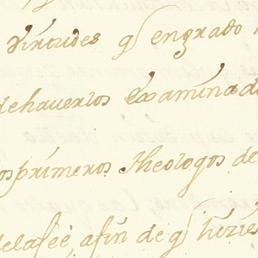 virtudes q̃ en grado
dehaverlos Examinad
os primeros theologos de
delafeè, afin de q̃ hizies